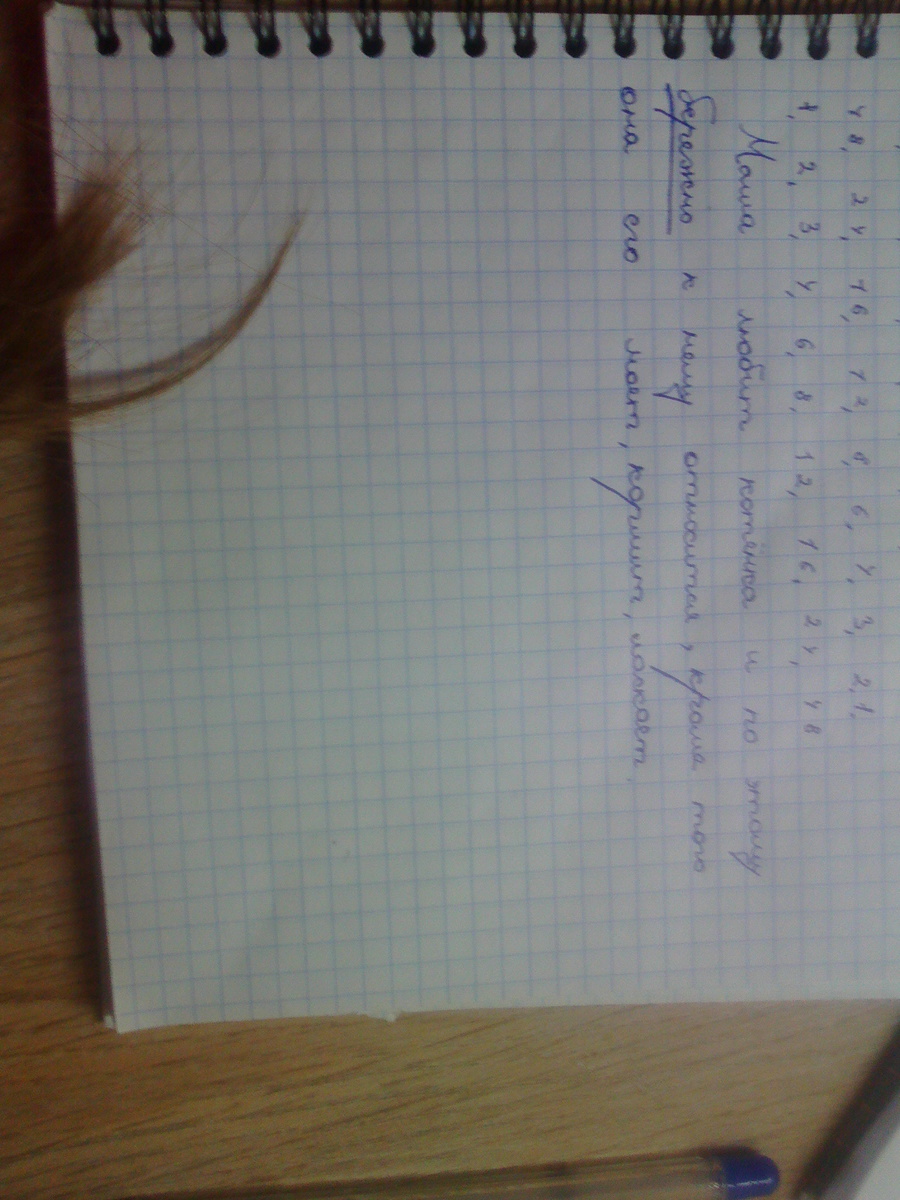 48, 24, 16, 12, 8, 6, 4, 3, 2, 1.
1, 2, 3, 4, 6, 8, 12, 16, 24, 48
Маша любит котёнка и по этому
бережно к нему относится, кроме того
она его моет, кормит, ласкает.